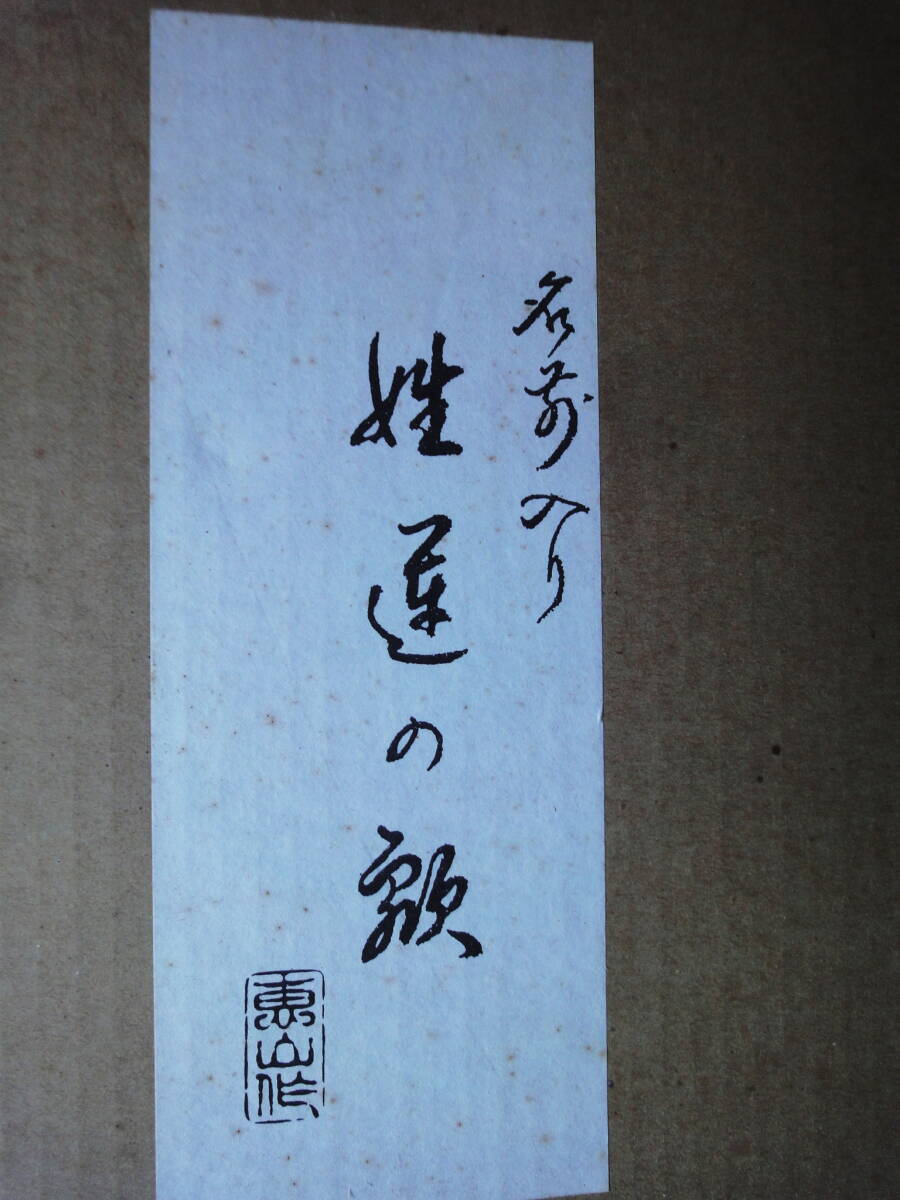 名前入り
姓運の額
惠山作